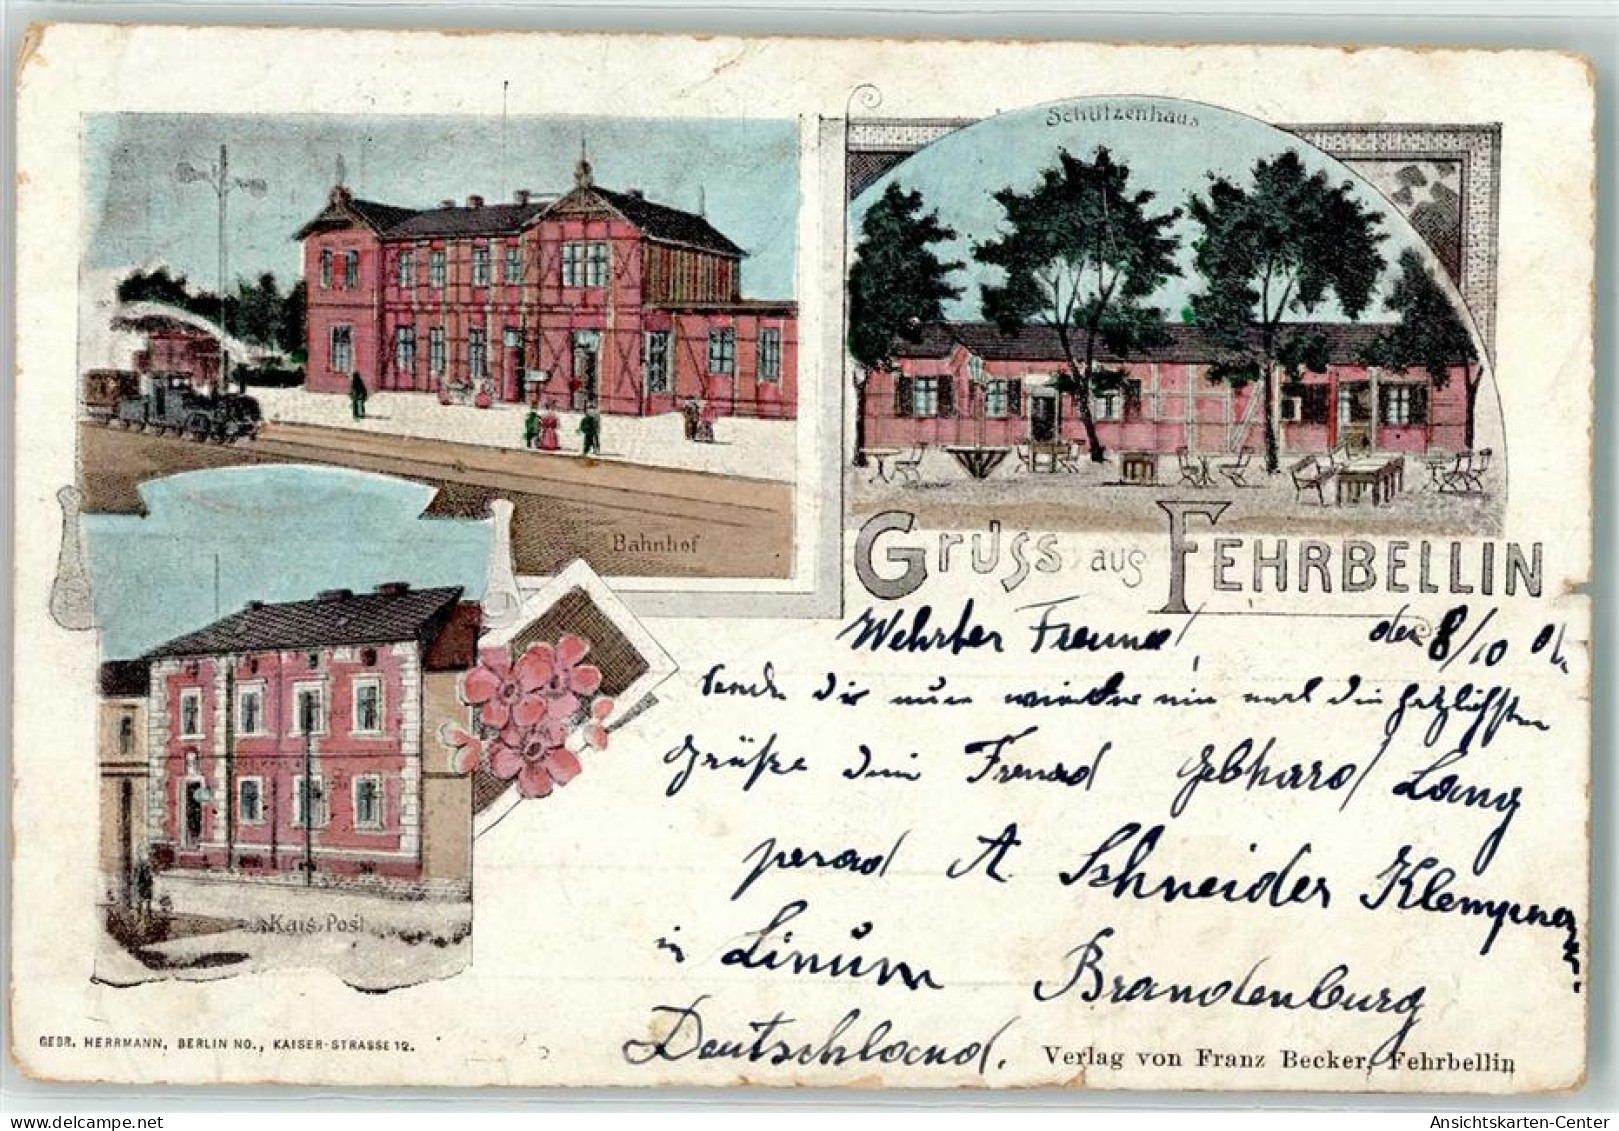 Schützenhaus
Bahnhof
Gruss aus FEHRBELLIN
Wehrter Freund! den 8/10 01.
Sende dir nun wieder ein mal die herzlichsten
Grüße dein Freund Gebhard Lang
A. Schneider Klempner
in Linum Brandenburg
Deutschland.
Kais. Post
GEBR. HERRMANN, BERLIN NO., KAISER-STRASSE 12.
Verlag von Franz Becker, Fehrbellin
Ansichtskarten-Center